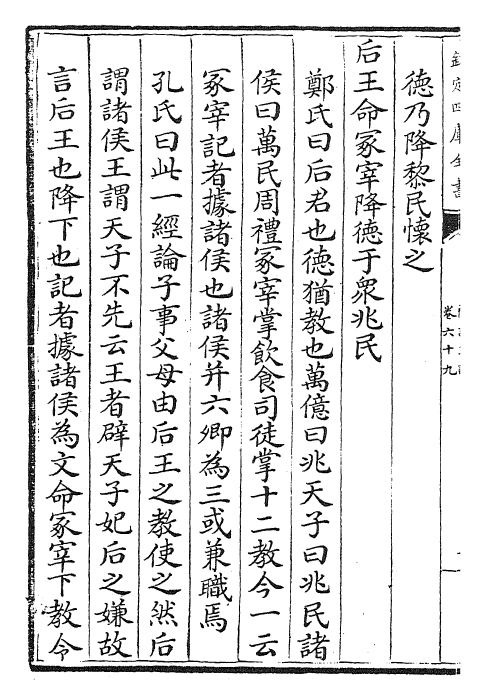 欽定四庫全書
卷六十九
德乃降黎民懷之
后王命冢宰降德于衆兆民
鄭氏曰后君也德猶教也萬億曰兆天子曰兆民諸
侯曰萬民周禮冢宰掌飲食司徒掌十二教今一云
冢宰記者據諸侯也諸侯并六卿為三或兼職焉
孔氏曰此一經論子事父母由后王之教使之然后
謂諸侯王謂天子不先云王者辟天子妃后之嫌故
言后王也降下也記者據諸侯為文命冢宰下教令